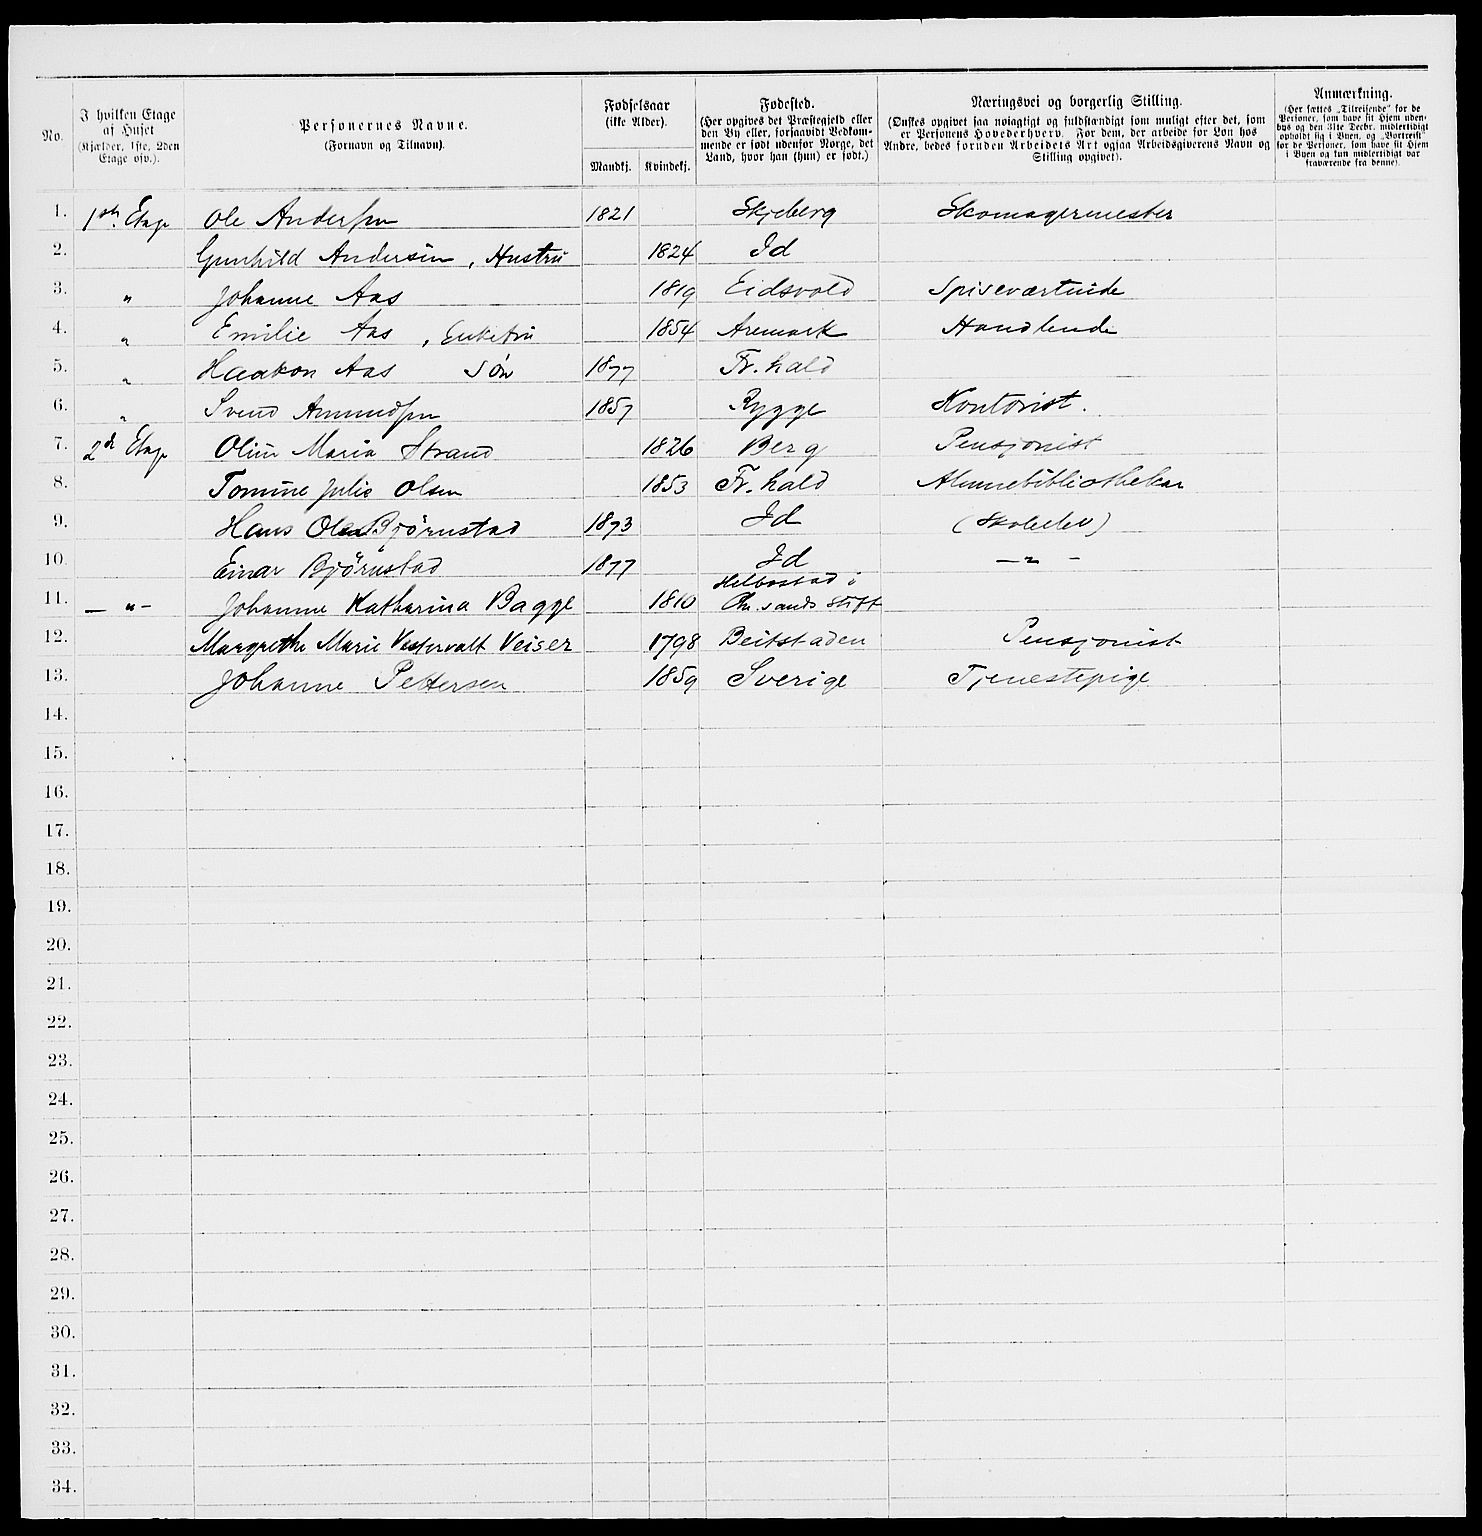 No.
I hvilken Etage af Huset (Kjælder, 1ste, 2den Etage osv.).
Personernes Navne. (Fornavn og Tilnavn).
Fødselsaar (ikke Alder).
Mandkj. Kvindekj.
Fødested. (Her opgives det Præstegjeld eller den By eller, forsaavidt Vedkommende er født udenfor Norge, det Land, hvor han (hun) er født.)
Næringsvei og borgerlig Stilling. (Ønskes opgivet saa nøiagtigt og fuldstændigt som muligt efter det, som er Personens Hovederhverv. For dem, der arbeide for Løn hos Andre, bedes foruden Arbeidets Art ogsaa Arbeidsgiverens Navn og Stilling opgivet).
Anmærkning. (Her sættes „Tilreisende" for de Personer, som have sit Hjem udenbys og den 31te Decbr. midlertidigt opholdt sig i Byen, og „Bortreist" for de Personer, som have sit Hjem i Byen og kun midlertidigt var fraværende fra denne).
1. 1ste Etage Ole Anderssen 1821 Skjeberg Skomagermester
2. Gunhild Andersen, Hustru 1824 Id
3. " Johanne Aas 1819 Eidsvold Spiseværtinde
4. " Emilie Aas, Enkefru 1854 Aremark Handlende
5. " Haakon Aas Søn 1877 Fr.hald
6. " Svend Amundsen 1857 Rygge Kontorist.
7. 2den Etage Oline Maria Strand 1826 Berg Pensjonist
8. Tomine Julie Olsen 1853 Fr.hald Almuebibliothekar
9. Hans Olsen Bjørnstad 1873 Id (Skoleelev)
10. Einar Bjørnstad 1877 Id — " —
11. — " — Johanne Katharina Bagge 1810 i Chr.sands Stift
12. Margrethe Marie Vestervalt Veiser 1798 Beitstaden Pensjonist
13. Johanne Pettersen 1859 Sverige Tjenestepige
14.
15.
16.
17.
18.
19.
20.
21.
22.
23.
24.
25.
26.
27.
28.
29.
30.
31.
32.
33.
34.